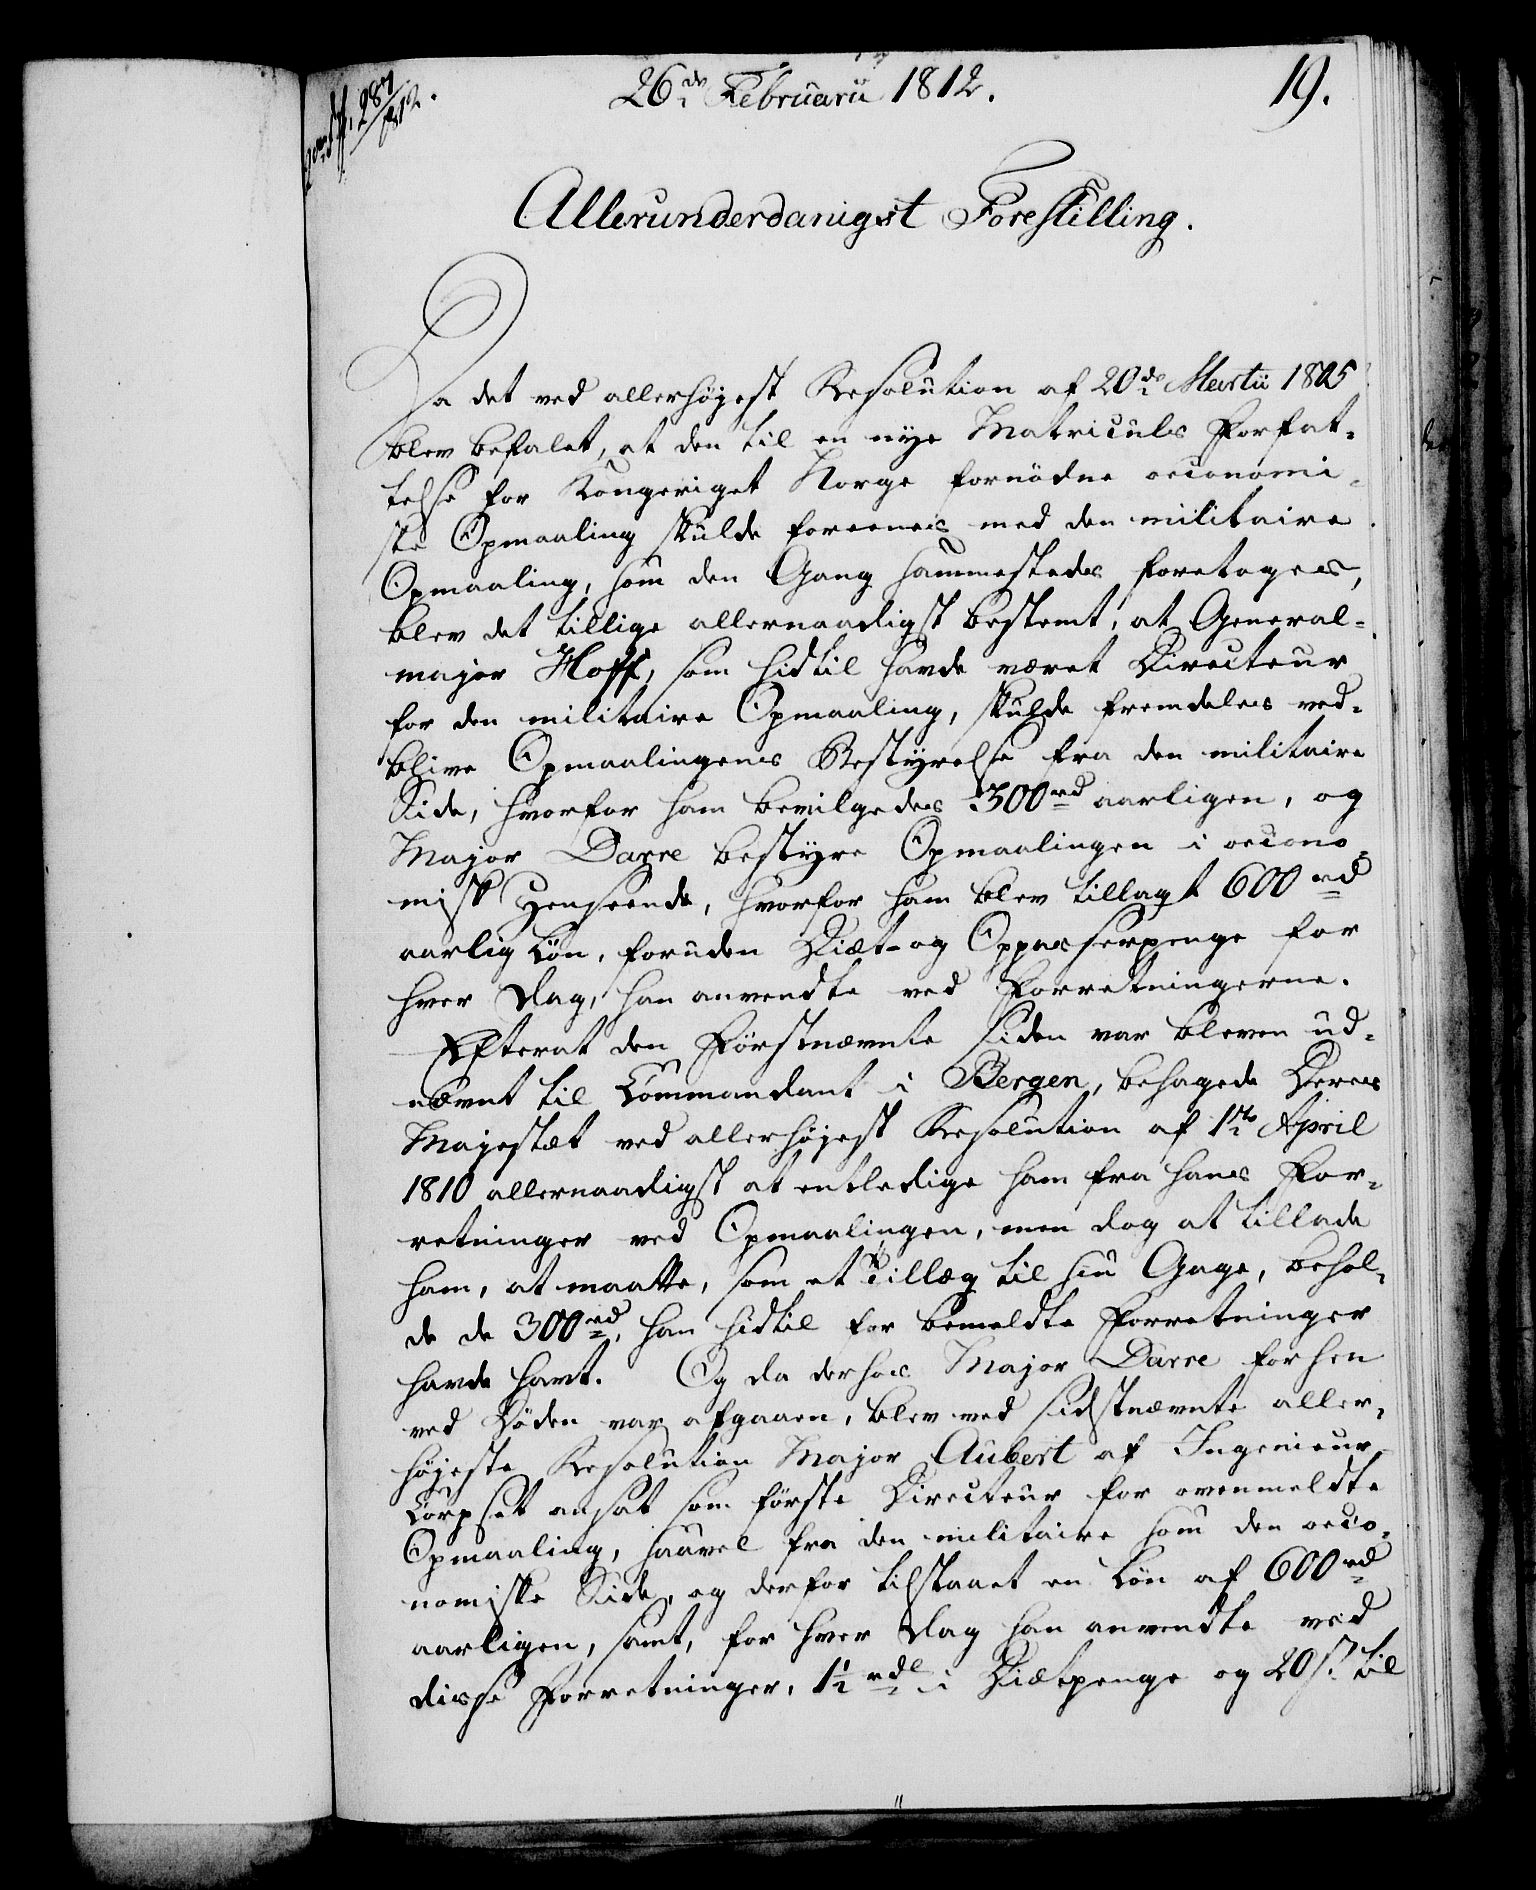 287
1812.
26de Februarii 1812.
19.
Allerunderdanigst Forestilling.
Da det ved allerhøjest Resolution af 20de Martii 1805
blev befalet, at den til en nye Matriculs Forfat-
telse for Kongeriget Norge fornødne oeconomi-
ske Opmaaling skulde foreenes med den militaire
Opmaaling, som den Gang sammestedes foretoges,
blev det tillige allernaadigst bestemt, at General-
major Hoff, som hidtil havde været Directeur
for den militaire Opmaaling, skulde fremdeles ved-
blive Opmaalingens Bestyrelse fra den militaire
Side, hvorfor ham bevilgedes 300rd aarligen, og
Major Darre bestyre Opmaalingen i oecono-
misk Henseende, hvorfor ham blev tillagt 600rd
aarlig Løn, foruden Diæt- og Oppasserpenge for
hver Dag, han anvendte ved Forretningerne.
Efterat den Førstnævnte siden var bleven ud-
nævnt til Commandant i Bergen, behagede Deres
Majestæt ved allerhøjest Resolution af 1ste April
1810 allernaadigst at entledige ham fra hans For-
retninger ved Opmaalingen, men dog at tillade
ham, at maatte, som et Tillæg til sin Gage, behol-
de de 300rd, han hidtil for bemeldte Forretninger
havde havt. Og da derhos Major Darre forhen
ved Døden var afgaaen, blev ved sidstnævnte aller-
højeste Resolution Major Aubert af Ingenieur-
Corpset ansat som første Directeur for ovenmeldte
Opmaaling, saavel fra den militaire som den oeco-
nomiske Side, og derfor tilstaaet en Løn af 600rd
aarligen, samt, for hver Dag han anvendte ved
disse Forretninger, 1½ rdl i Diætpenge og 20 s. til